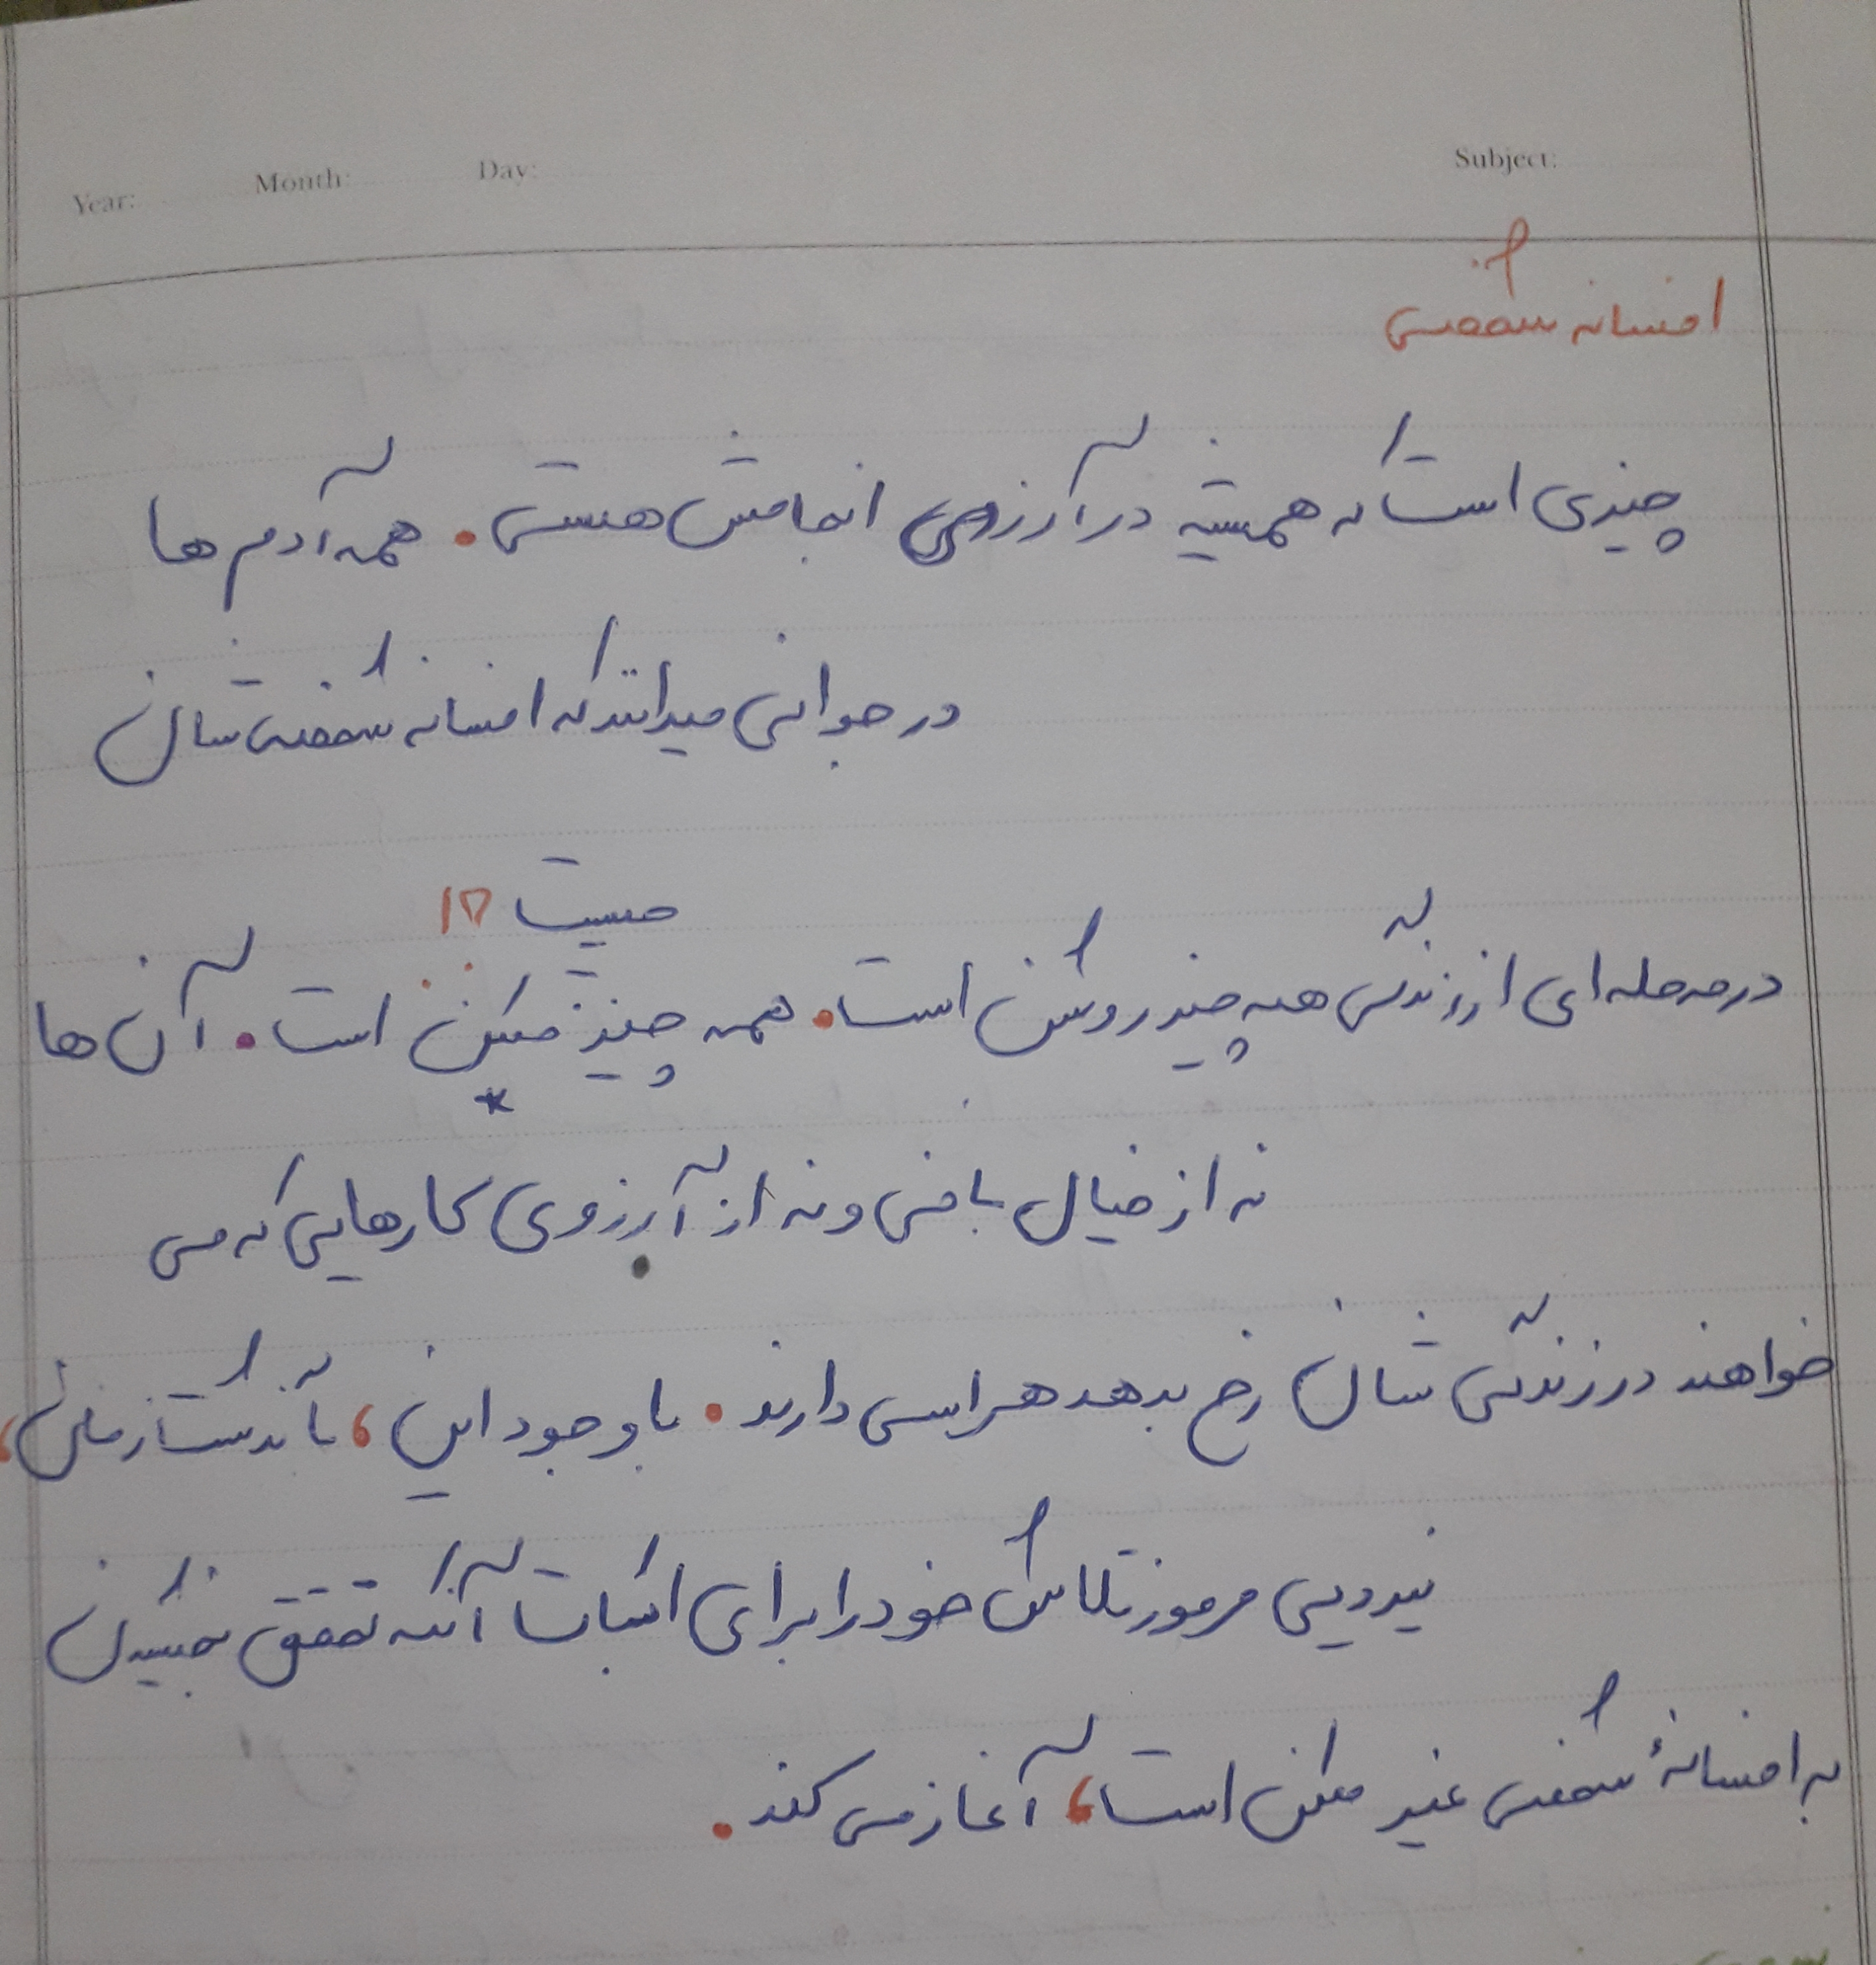 Year: Month: Day: Subject:
افسانه شخصی
چیزی است که همیشه در آرزوی انجامش هستی. همه آدم ها
در جوانی میدانند که افسانه شخصی شان
چیست
در مرحله ای از زندگی همه چیز روشن است. همه چیز ممکن است. آن ها
نه از خیال بافی و نه از آرزوی کارهایی که می
خواهند در زندگی شان رخ بدهد هراسی دارند. با وجود این، با گذشت زمان،
نیرویی مرموز تلاش خود را برای اثبات آنکه تحقق بخشیدن
به افسانهٔ شخصی غیر ممکن است، آغاز می کند.